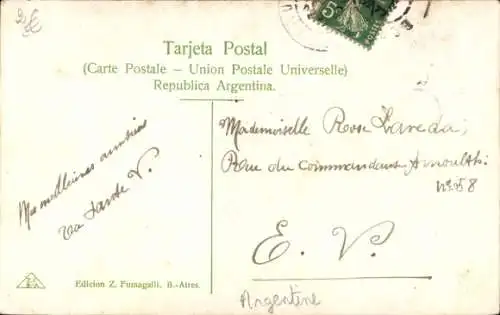 5
Tarjeta Postal
(Carte Postale – Union Postale Universelle)
Republica Argentina.
Mademoiselle Rose
Rue du Commandant Arnould
No 58
E. V.
Mes meilleures amitiés
V.
Edicion Z. Fumagalli. B.-Aires.
Argentine